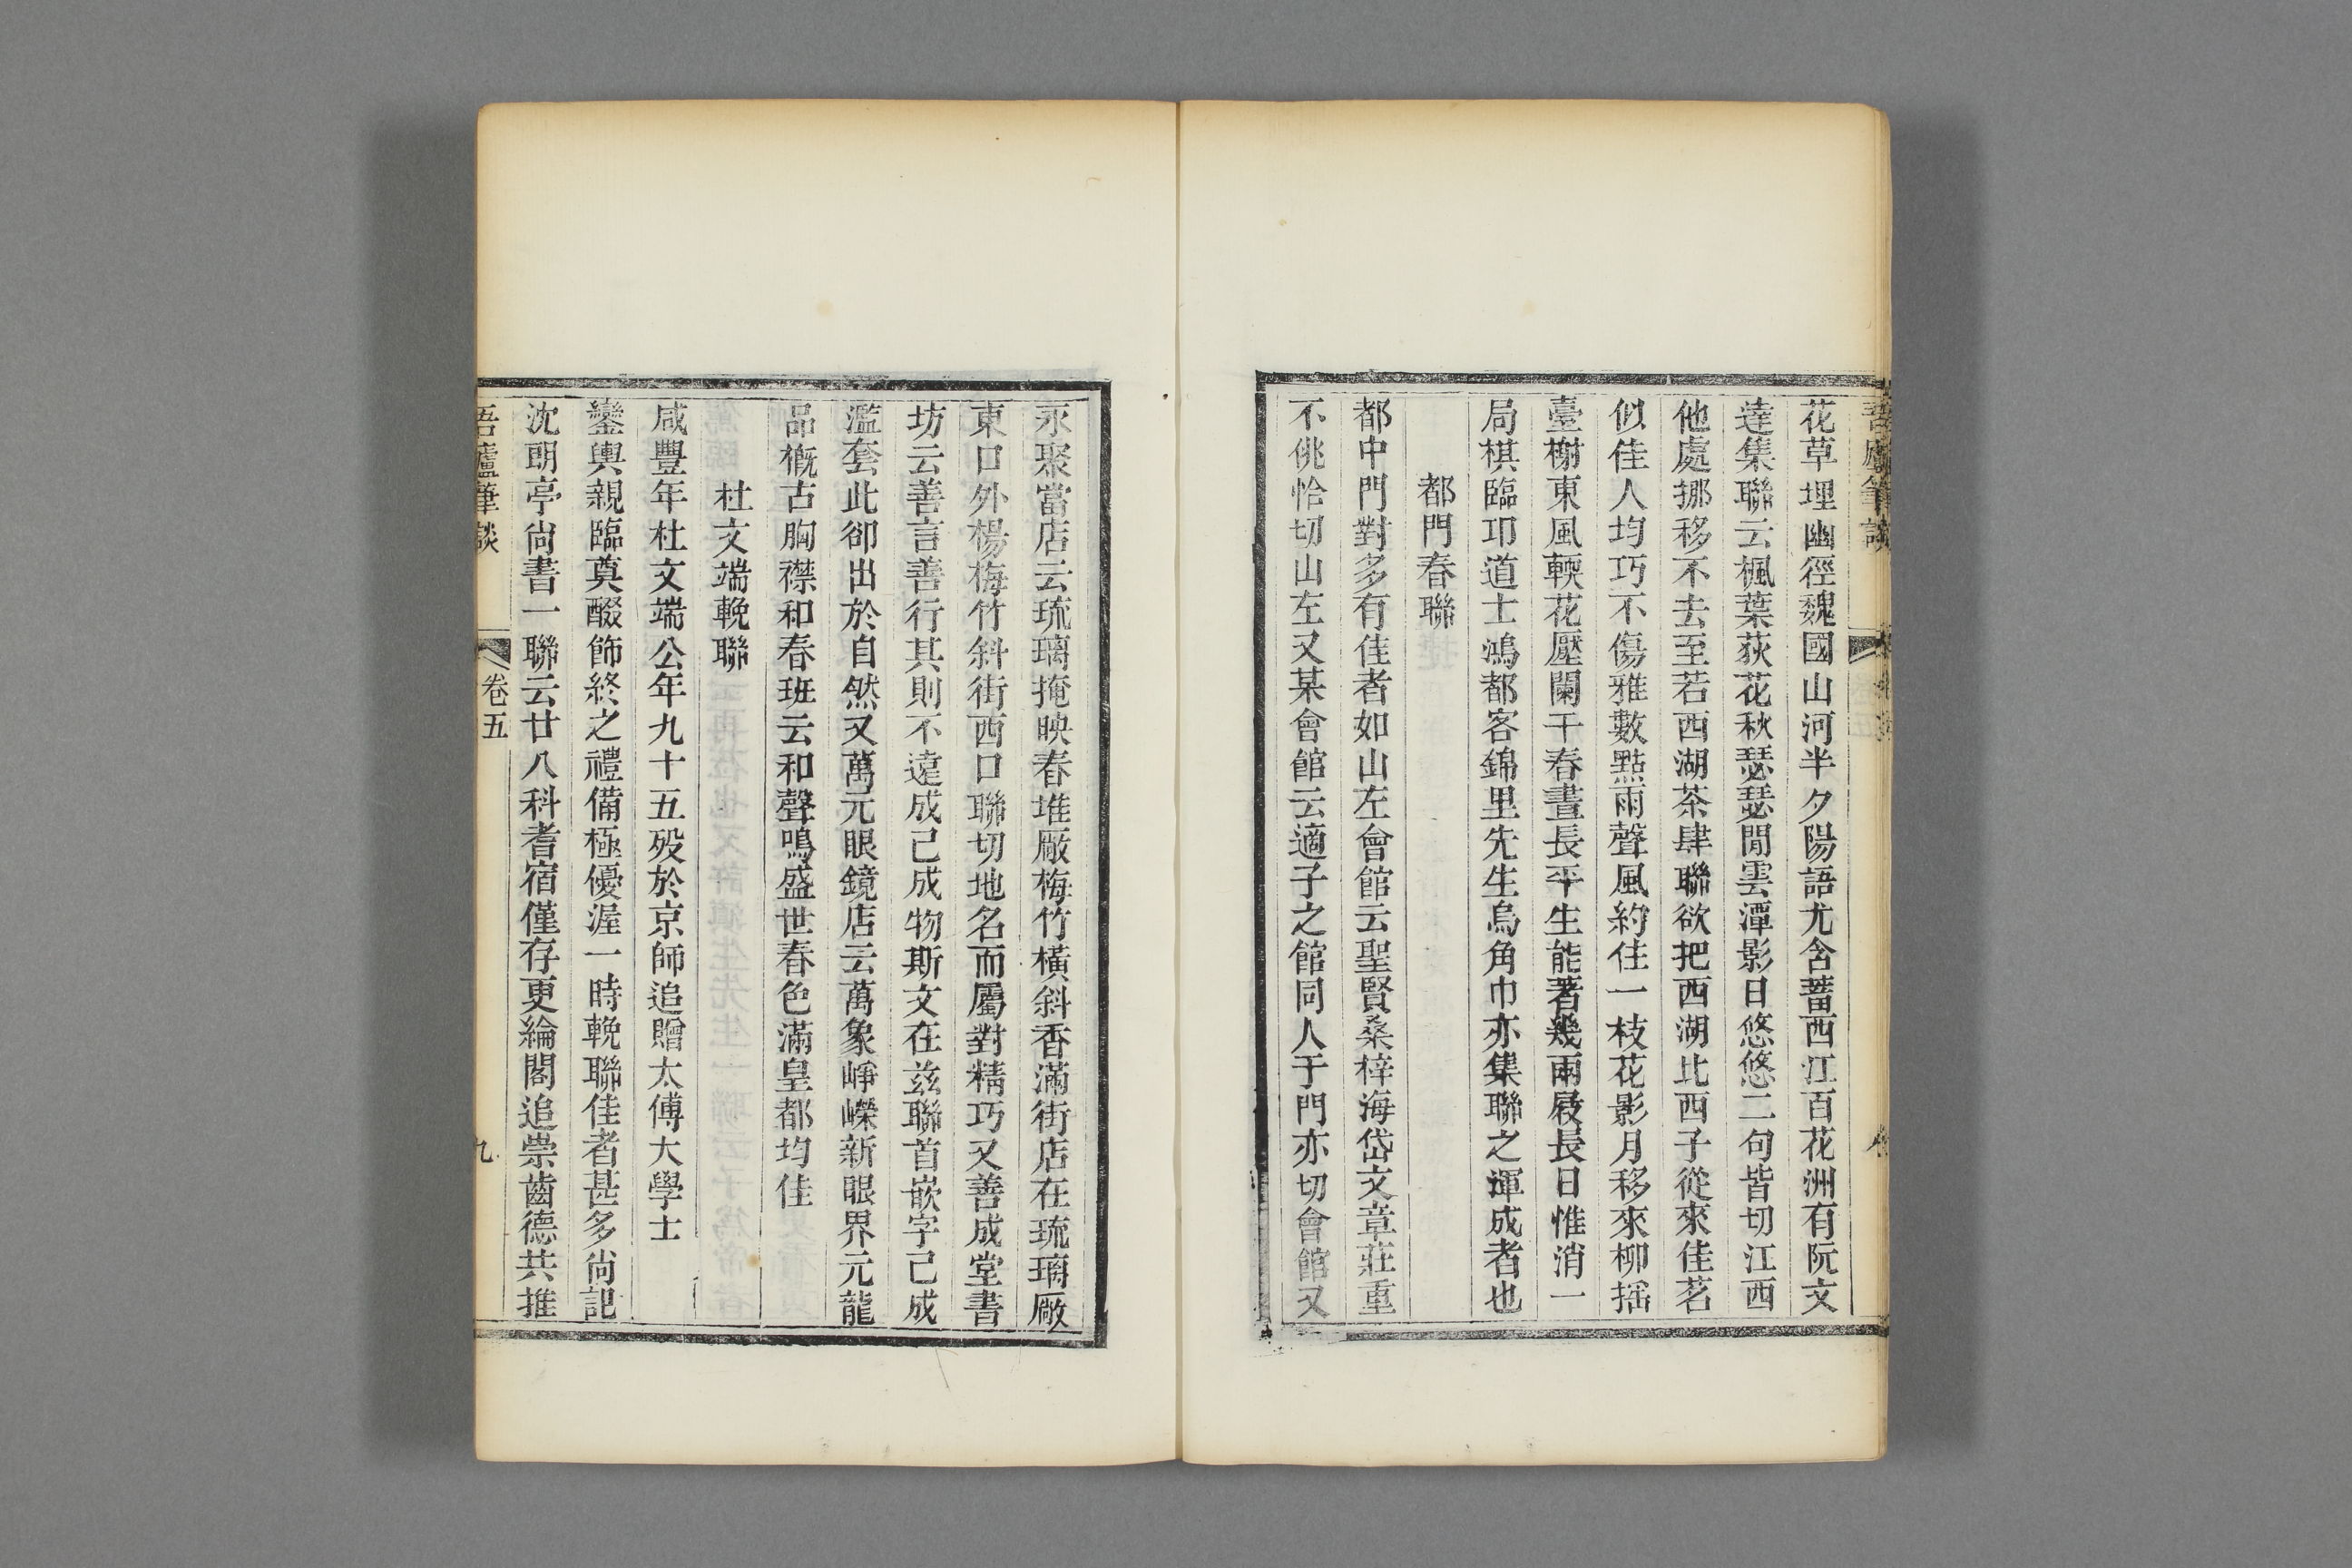 吾廬筆談
花草埋幽徑魏國山河半夕陽語尤含蓄西江百花洲有阮文
達集聯云楓葉荻花秋瑟瑟閒雲潭影日悠悠二句皆切江西
他處挪移不去至若西湖茶肆聯欲把西湖比西子從來佳茗
似佳人均巧不傷雅數點雨聲風約住一枝花影月移來柳搖
臺榭東風輭花壓闌干春晝長平生能著幾兩屐長日惟消一
局棋臨邛道士鴻都客錦里先生烏角巾亦集聯之渾成者也
都門春聯
都中門對多有佳者如山左會館云聖賢桑梓海岱文章莊重
不佻恰切山左又某會館云適子之館同人于門亦切會館又
永聚當店云琉璃掩映春堆廠梅竹橫斜香滿街店在琉璃廠
東口外楊梅竹斜街西口聯切地名而屬對精巧又善成堂書
坊云善言善行其則不遠成己成物斯文在兹聯首嵌字己成
濫套此卻出於自然又萬元眼鏡店云萬象崢嶸新眼界元龍
品槪古胸襟和春班云和聲鳴盛世春色滿皇都均佳
杜文端輓聯
咸豐年杜文端公年九十五歿於京師追贈太傅大學士
鑾輿親臨奠醊飾終之禮備極優渥一時輓聯佳者甚多尙記
沈朗亭尙書一聯云廿八科耆宿僅存更綸閣追崇齒德共推
吾廬筆談
卷五
九